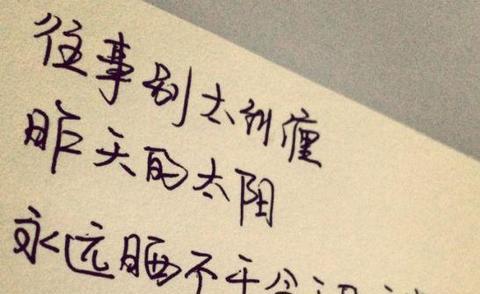 往事别太纠缠
昨天的太阳
永远晒不干